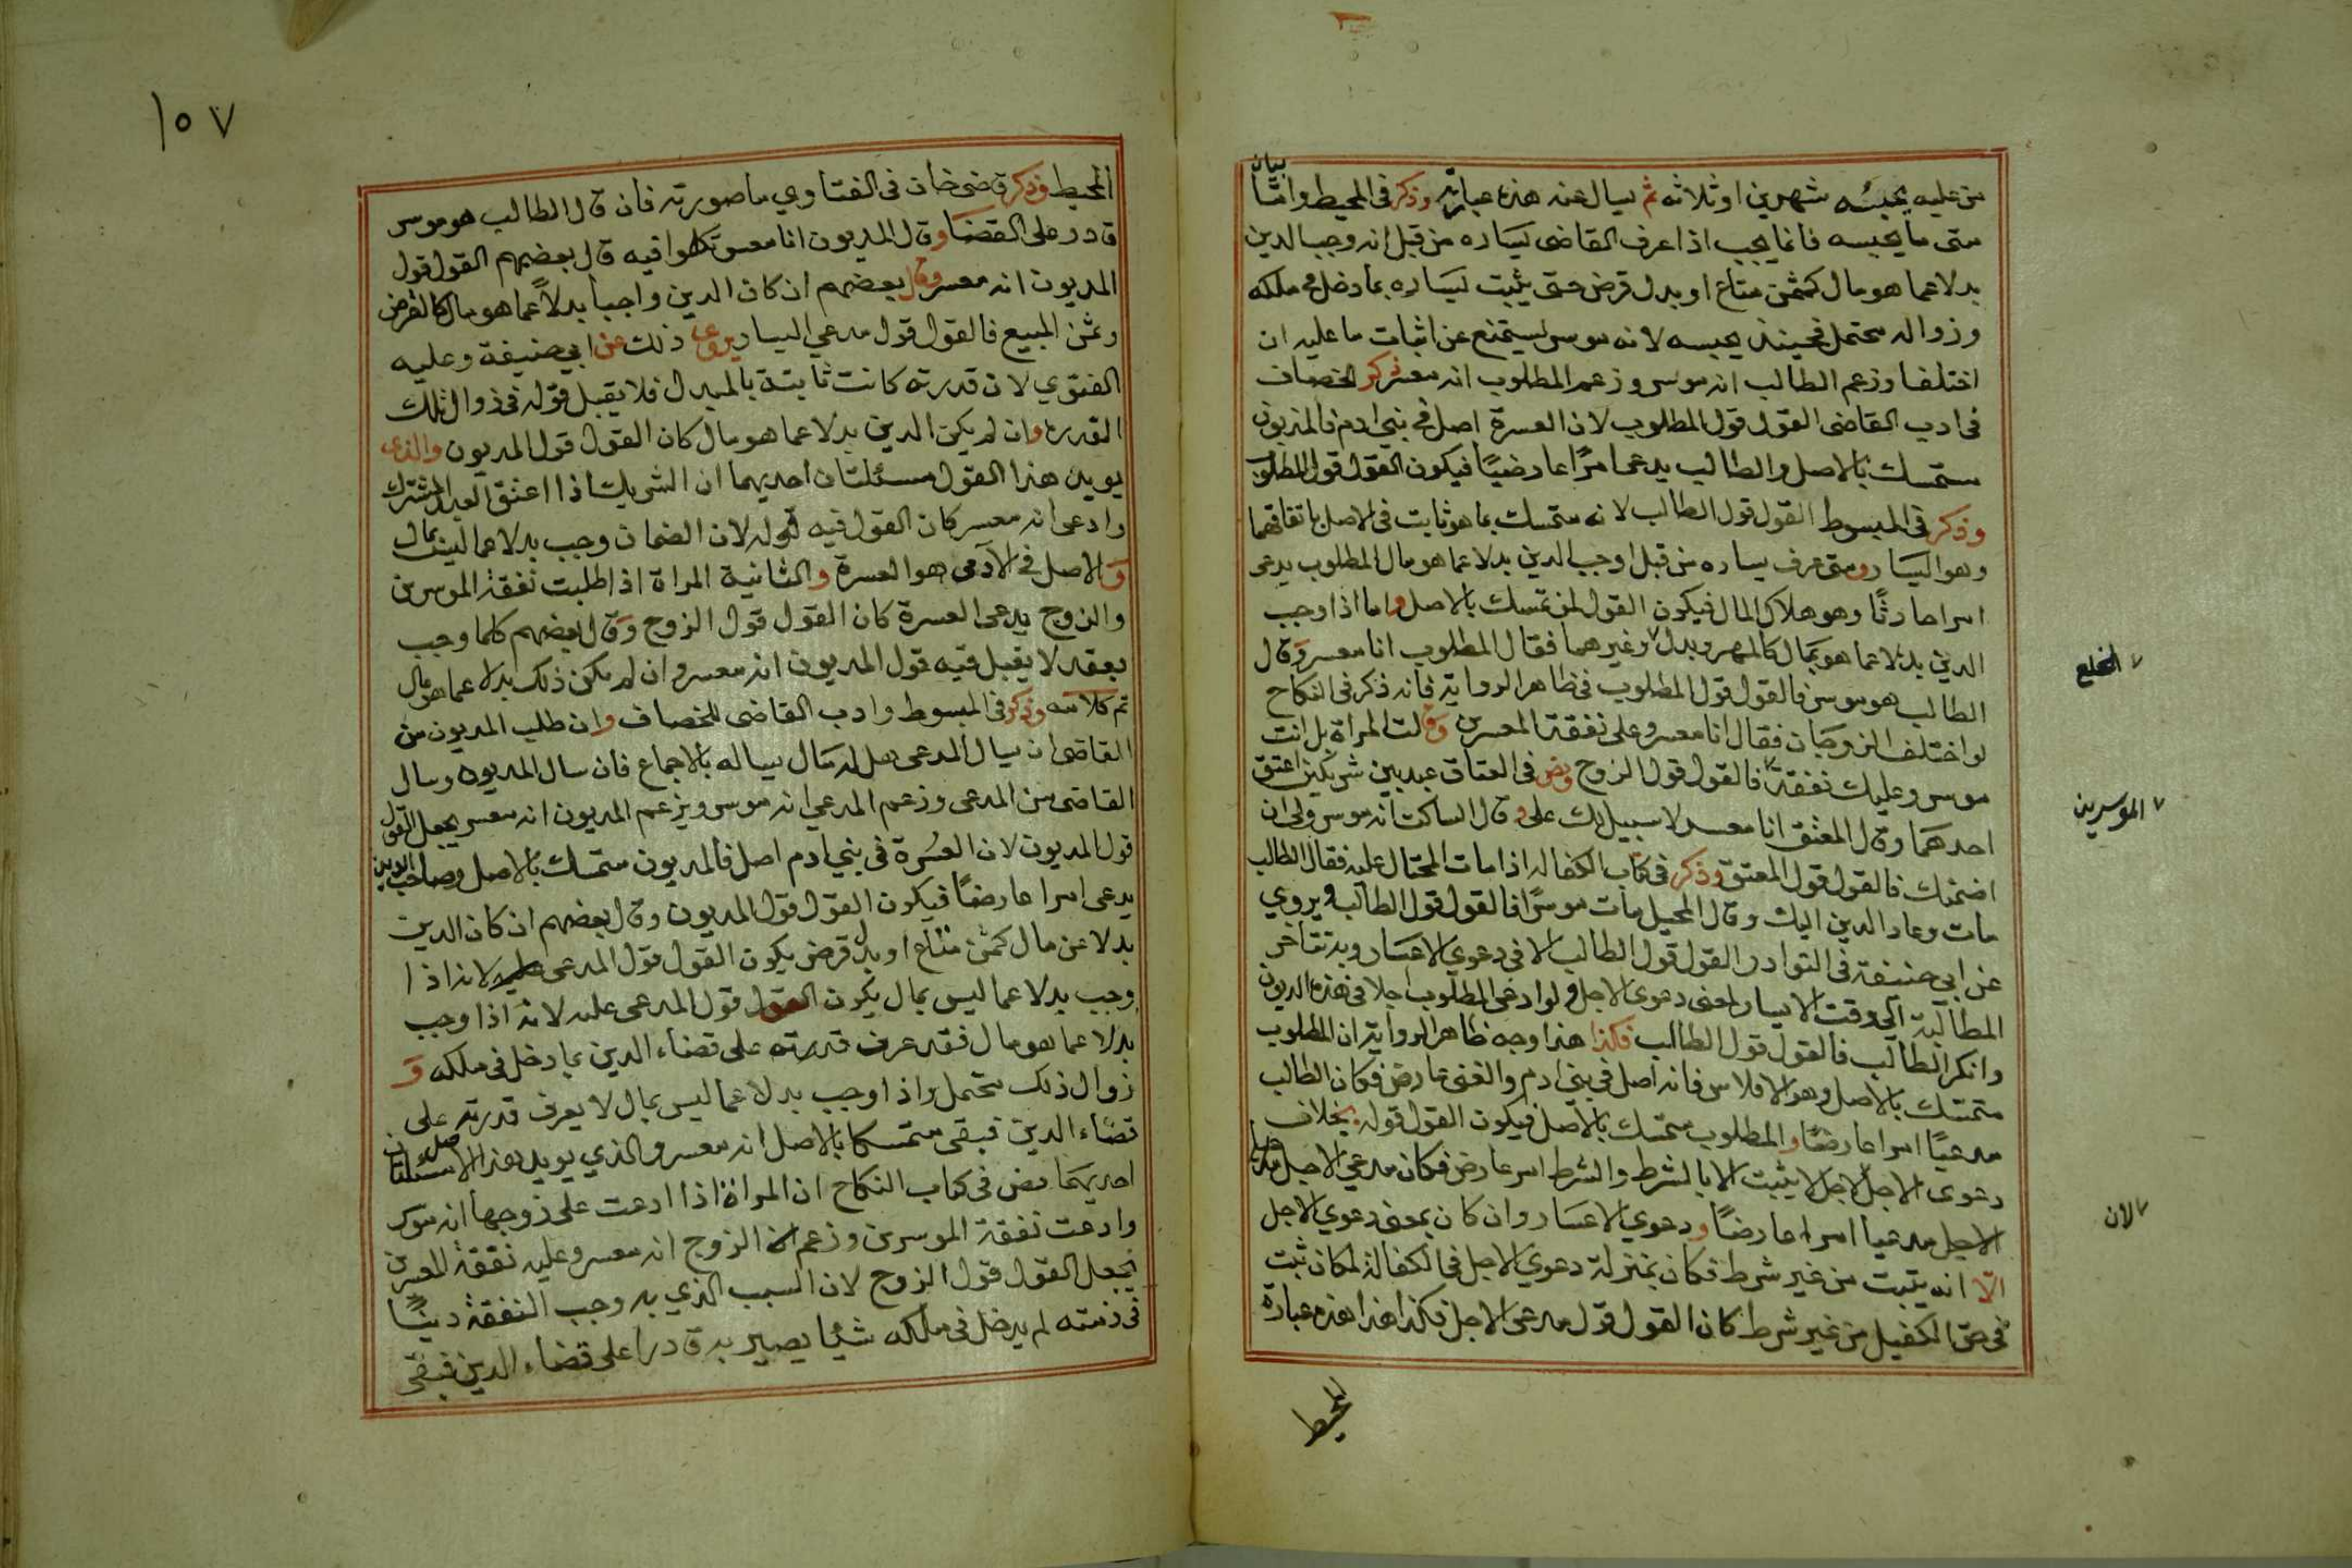 من عليه يحبسه شهرين او ثلاثة ثم يسال عنه هذه عبارته وذكر فى المحيط واما بيان
متى ما يحبسه فانما يجب اذا عرف القاضى يساره من قبل انه وجب الدين
بدلا عما هو مال كثمن متاع او بدل قرض حتى يثبت يساره بما دخل فى ملكه
وزواله محتمل فحينئذ يحبسه لانه موسر ليستمنع عن اثبات ما عليه ان
اختلفا وزعم الطالب انه موسر وزعم المطلوب انه معسر ذكر الخصاف
فى ادب القاضى القول قول المطلوب لان العسرة اصل فى بنى ادم فالمديون
متمسك بالاصل والطالب يدعى امرًا عارضيًا فيكون القول قول المطلوب
وذكر فى المبسوط القول قول الطالب لانه متمسك بما هو ثابت فى الاصل باتفاقهما
وهو اليسار ومتى عرف يساره من قبل اوجب الدين بدلا عما هو مال المطلوب يدعى
امرا حادثًا وهو هلاك المال فيكون القول لمن تمسك بالاصل واما اذا وجب
الدين بدلا عما هو بمال كالمهر وبدل ٧ وغيرهما فقال المطلوب انا معسر وقال
٧ الخلع
الطالب هو موسر فالقول قول المطلوب فى ظاهر الرواية فانه ذكر فى النكاح
لو اختلف الزوجان فقال انا معسر وعلى نفقة المعسرين وقالت المراة بل انت
موسر وعليك نفقة ٧ فالقول قول الزوج ونص فى العتاق عبد بين شريكين اعتق
٧ الموسرين
احدهما وقال المعتق انا معسر لا سبيل لك على وقال الساكت انه موسر ولى ان
اضمنك فالقول قول المعتق وذكر فى كتاب الكفالة اذا مات المحتال عليه فقال الطالب
مات وعاد الدين اليك وقال المحيل مات موسرًا فالقول قول الطالب ويروي
عن ابى حنيفة فى النوادر القول قول الطالب الا فى دعوي الاعسار وبه تتاخر
المطالبة الى وقت الايسار لمعنى دعوى الاجل ولو ادعى المطلوب اجلا فى هذه الديون
وانكر الطالب فالقول قول الطالب فكذا هذا وجه ظاهر الرواية ان المطلوب
متمسك بالاصل وهو الافلاس فانه اصل فى بنى ادم والغنى عارض فكان الطالب
مدعيًا امرا عارضًا والمطلوب متمسك بالاصل فيكون القول قوله بخلاف
دعوى الاجل ٧ الاجل لا يثبت الا بالشرط والشرط امر عارض فكان مدعي الاجل مدعيا
٧ لان
الاجل مدعيا امرا عارضًا ودعوي الاعسار وان كان بمعنى دعوي الاجل
الّا انه يثبت من غير شرط فكان بمنزلة دعوي الاجل فى الكفالة لمكان ثبت
فى حق الكفيل من غير شرط كان القول قول مدعى الاجل فكذا هذا هذه عبارة
المحيط
١٥٧
المحيط وذكر قاضى خان فى الفتاوي ما صورته فان قال الطالب هو موسر
قادر على القضا وقال المديون انا معسر تكلموا فيه قال بعضهم القول قول
المديون انه معسر وقال بعضهم ان كان الدين واجبا بدلاً عما هو مال كالقرض
وثمن المبيع فالقول قول مدعي اليسار يروى ذلك عن ابي حنيفة وعليه
الفتوي لان قدرته كانت ثابتة بالمبدل فلا يقبل قوله فى زوال تلك
القدرة وان لم يكن الدين بدلا عما هو مال كان القول قول المديون والذى
يويد هذا القول مسئلتان احديهما ان الشريك اذا اعتق العبد المشترك
وادعى انه معسر كان القول فيه قوله لان الضمان وجب بدلا عما ليس بمال
والاصل فى الآدمى هو العسرة والثانية المراة اذا طلبت نفقة الموسرين
والزوج يدعى العسرة كان القول قول الزوج وقال بعضهم كلما وجب
بعقد لا يقبل فيه قول المديون انه معسر وان لم يكن ذلك بدلا عما هو مال
تم كلامه وذكر فى المبسوط وادب القاضى للخصاف وان طلب المديون من
القاضى ان يسال المدعى هل له مال يساله بالاجماع فان سال المديون وسال
القاضى من المدعى وزعم المدعي انه موسر ويزعم المديون انه معسر يجعل القول
قول المديون لان العسرة فى بنى ادم اصل فالمديون متمسك بالاصل وصاحب الدين
يدعى امرا عارضًا فيكون القول قول المديون وقال بعضهم ان كان الدين
بدلا عن مال كثمن متاع او بدل قرض يكون القول قول المدعى لانه اذا
وجب بدلا عما ليس بمال يكون القول قول المدعى عليه لانه اذا وجب
بدلا عما هو مال فقد عرف قدرته على قضاء الدين بما دخل فى ملكه و
زوال ذلك محتمل واذا وجب بدلا عما ليس بمال لا يعرف قدرته على
قضاء الدين فبقى متمسكا بالاصل انه معسر والذي يويد هذا الاصل مسئلتان
احديهما نص فى كتاب النكاح ان المراة اذا ادعت على زوجها انه موسر
وادعت نفقة الموسرين وزعم الزوج انه معسر وعليه نفقة المعسرين
يجعل القول قول الزوج لان السبب الذي به وجب النفقة دينًا
فى ذمته لم يدخل فى ملكه شيئا يصير به قادرا على قضاء الدين فبقى